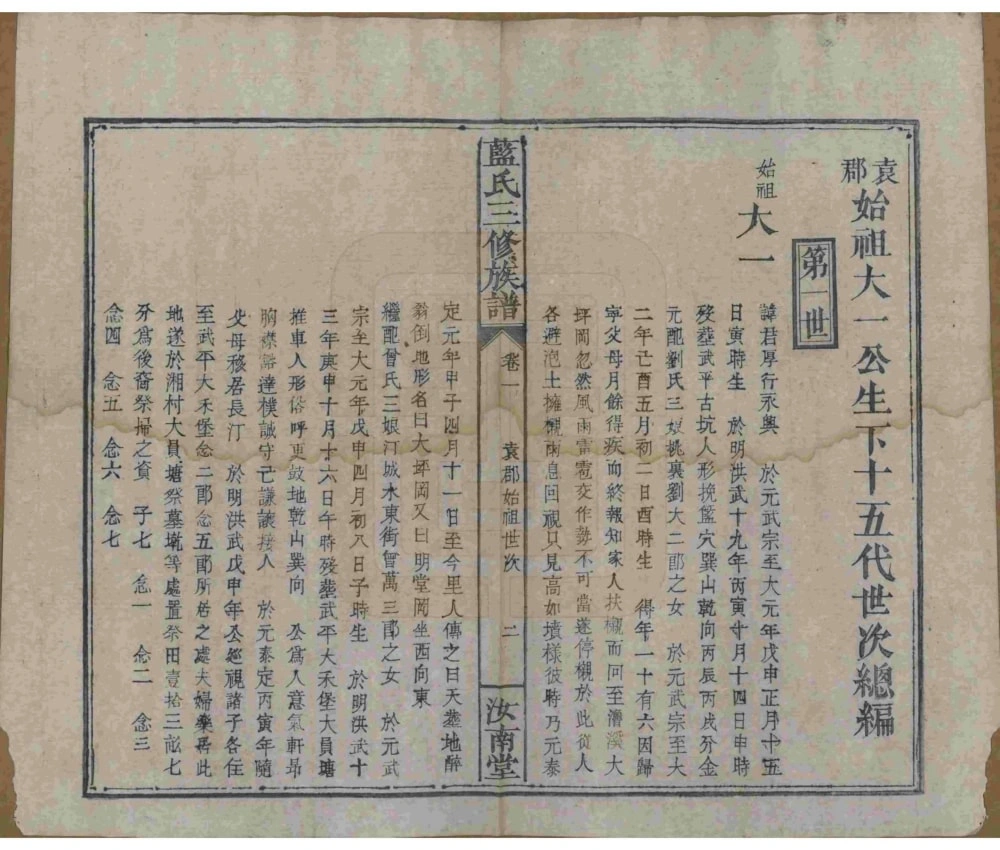 袁郡始祖大一公生下十五代世次總編
第一世
始祖大一
諱君厚行永興 於元武宗至大元年戊申正月十五
日寅時生 於明洪武十九年丙寅十月十四日申時
殁塟武平古坑人形挽籃穴巽山乾向丙辰丙戌分金
元配劉氏三娘挑裏劉大二郎之女 於元武宗至大
二年己酉五月初二日酉時生 得年一十有六因歸
寧父母月餘得疾而終報知家人扶櫬而回至溪大
坪岡忽然風雨雷雹交作勢不可當遂停櫬於此從人
各避泡土擁櫬雨息回視只見高如墳樣彼時乃元泰
藍氏三修族譜
卷一
袁郡始祖世次
二
汝南堂
定元年甲子四月十一日至今里人傳之曰天塟地醉
翁倒地形名曰大坪岡又曰明堂岡坐西向東
繼配曾氏三娘汀城水東街曾萬三郎之女 於元武
宗至大元年戊申四月初八日子時生 於明洪武十
三年庚申十月十六日午時殁塟武平大禾堡大員塘
推車人形俗呼更鼓地乾山巽向 公爲人意氣軒昂
胸襟豁達樸誠守己謙讓接人 於元泰定丙寅年隨
父母移居長汀 於明洪武戊申年公廵視諸子各住
至武平大禾堡念二郎念五郎所居之處夫婦樂再此
地遂於湘村大員塘祭墓墩等處置祭田壹拾三畝七
分爲後裔祭掃之資 子七 念一 念二 念三
念四 念五 念六 念七